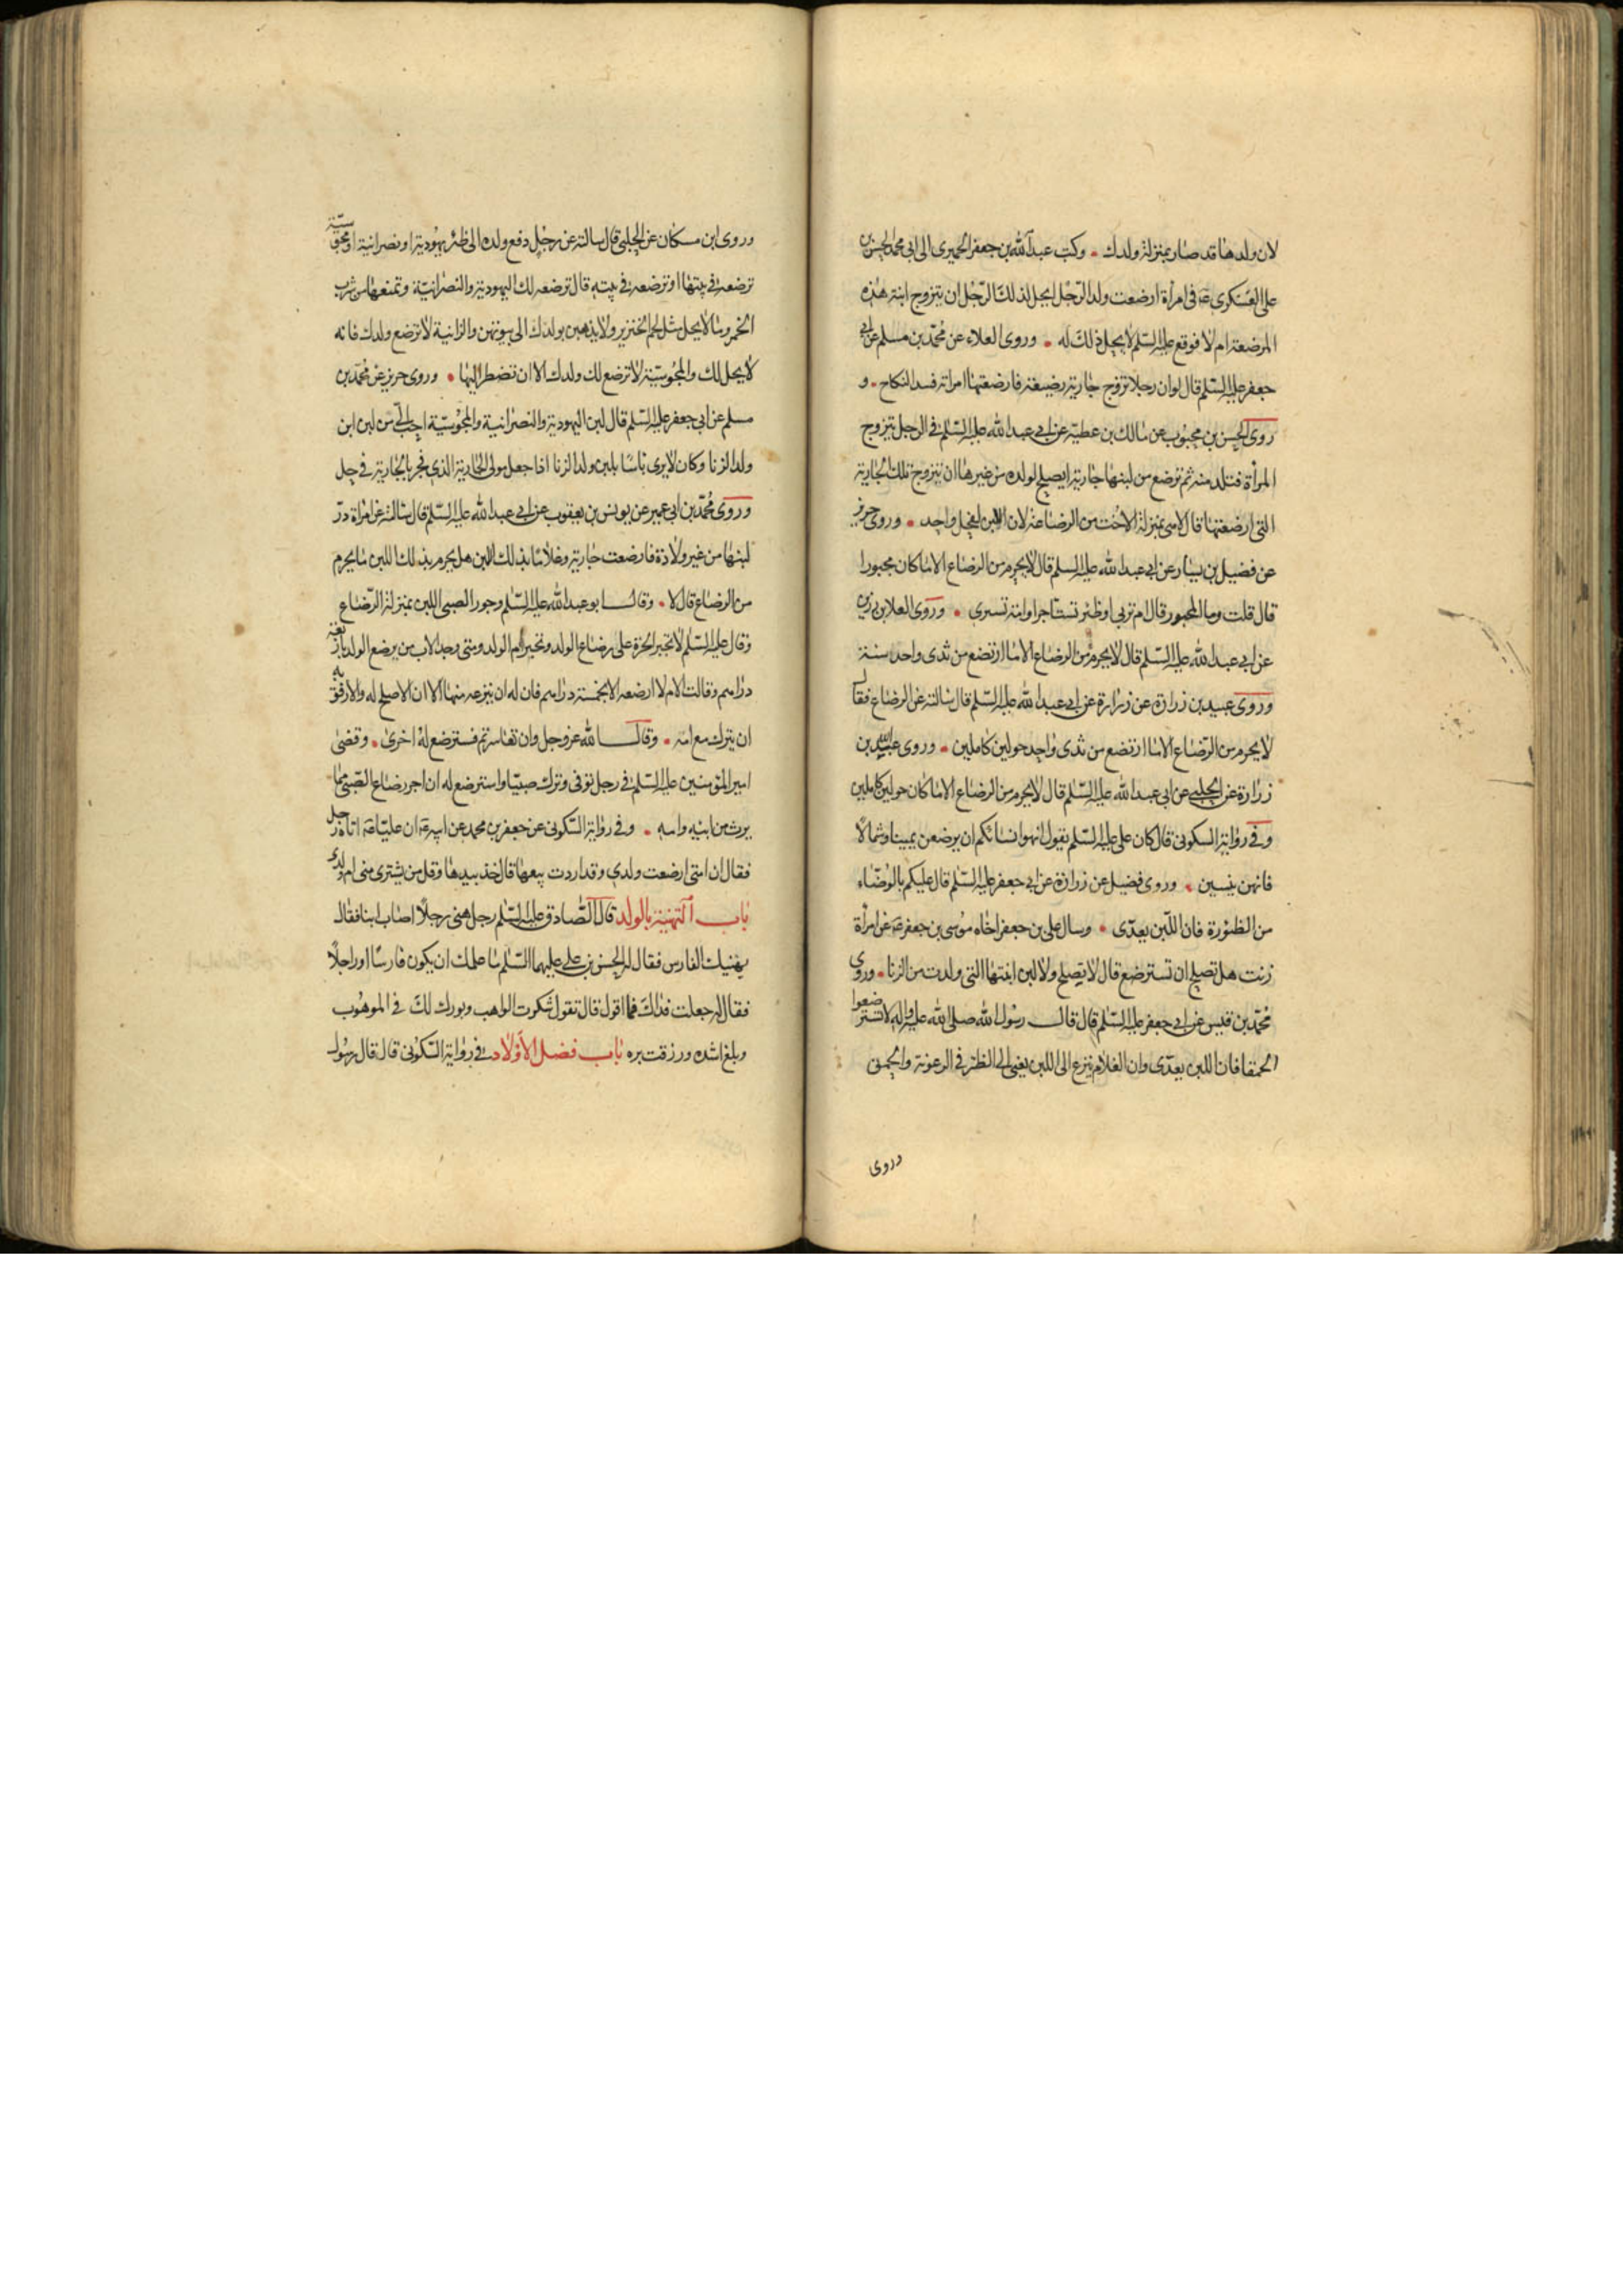 لان ولدها قد صار بمنزلة ولدك وكتب عبد الله بن جعفر الحميرى الى ابى محمد الحسن بن
على العسكرى ع فى امرأة ارضعت ولد الرجل ايحل لذلك الرجل ان يتزوج ابنة هذه
المرضعة ام لا فوقع عليه السلم لا يحل ذلك له وروى العلاء عن محمد بن مسلم عن ابى
جعفر عليه السلم قال لو ان رجلا تزوج جارية رضيعة فارضعتها امراته فسد النكاح و
روى الحسن بن محبوب عن مالك بن عطية عن ابى عبد الله عليه السلم فى الرجل يتزوج
المرأة فتلد منه ثم ترضع من لبنها جارية ايصلح لولده من غيرها ان يتزوج تلك الجارية
التى ارضعتها قال لا هى بمنزلة الاخت من الرضاعة لان اللبن لفحل واحد وروى حريز
عن فضيل بن يسار عن ابى عبد الله عليه السلم قال لا يحرم من الرضاع الا ما كان مجبورا
قال قلت وما المجبور قال ام تربى او ظئر تستاجر او امة تسرى وروى العلا بن رزين
عن ابى عبد الله عليه السلم قال لا يحرم من الرضاع الا ما ارتضع من ثدى واحد سنة
وروى عبيد بن زرارة عن زرارة عن ابى عبد الله عليه السلم قال سالته عن الرضاع فقال
لا يحرم من الرضاع الا ما ارتضع من ثدى واحد حولين كاملين وروى عبيد الله بن
زرارة عن الحلبى عن ابى عبد الله عليه السلم قال لا يحرم من الرضاع الا ما كان حولين كاملين
وفى رواية السكونى قال كان على عليه السلم يقول انهوا نسائكم ان يرضعن يمينا وشمالا
فانهن ينسين وروى فضيل عن زرارة عن ابى جعفر عليه السلم قال عليكم بالوضاء
من الظئورة فان اللبن يعدى وسال على بن جعفر اخاه موسى بن جعفر ع عن امرأة
زنت هل تصلح ان تسترضع قال لا تصلح ولا لبن ابنتها التى ولدت من الزنا وروى
محمد بن قيس عن ابى جعفر عليه السلم قال قال رسول الله صلى الله عليه واله لا تسترضعوا
الحمقا فان اللبن يعدى وان الغلام ينزع الى اللبن يعنى الى الظئر فى الرعونة والحمق
وروى
وروى ابن مسكان عن الحلبى قال سالته عن رجل دفع ولده الى ظئر يهودية او نصرانية او مجوسية
ترضعه فى بيتها او ترضعه فى بيته قال ترضعه لك اليهودية والنصرانية وتمنعها من شرب
الخمر وما لا يحل مثل لحم الخنزير ولا يذهبن بولدك الى بيوتهن والزانية لا ترضع ولدك فانه
لا يحل لك والمجوسية لا ترضع لك ولدك الا ان تضطر اليها وروى حريز عن محمد بن
مسلم عن ابى جعفر عليه السلم قال لبن اليهودية والنصرانية والمجوسية احب الى من لبن ابن
ولد الزنا وكان لا يرى باسا بلبن ولد الزنا اذا جعل مولى الجارية الذى فجر بالجارية فى حل
وروى محمد بن ابى عمير عن يونس بن يعقوب عن ابى عبد الله عليه السلم قال سالته عن امراة در
لبنها من غير ولادة فارضعت جارية وغلاما بذلك اللبن هل يحرم بذلك اللبن ما يحرم
من الرضاع قال لا وقال ابو عبد الله عليه السلم وجور الصبى اللبن بمنزلة الرضاع
وقال عليه السلم لا تجبر الحرة على رضاع الولد وتجبر ام الولد ومتى وجد الاب من يرضع الولد باربعة
دراهم وقالت الام لا ارضعه الا بخمسة دراهم فان له ان ينزعه منها الا ان الاصلح له والارفق به
ان يترك مع امه وقال الله عز وجل وان تعاسرتم فسترضع له اخرى وقضى
امير المؤمنين عليه السلم فى رجل توفى وترك صبيا واسترضع له ان اجر رضاع الصبى مما
يرث من ابيه وامه وفى رواية السكونى عن جعفر بن محمد عن ابيه ع ان عليا ع اتاه رجل
فقال ان امتى ارضعت ولدى وقد اردت بيعها قال خذ بيدها وقل من يشترى منى ام ولدى
باب التهنية بالولد قال الصادق عليه السلم رجل هنى رجلا اصاب ابنا فقال
يهنيك الفارس فقال له الحسن بن على عليهما السلم ما علمك ان يكون فارسا او راجلا
فقال له جعلت فداك فما اقول قال تقول شكرت الواهب وبورك لك فى الموهوب
وبلغ اشده ورزقت بره باب فضل الاولاد فى رواية السكونى قال قال رسول